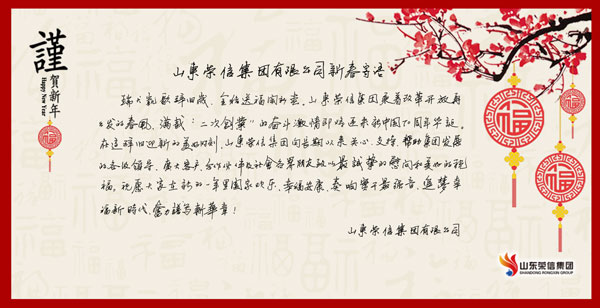 謹
賀新年
Happy New Year
福
山东荣信集团有限公司新春寄语
瑞犬凯歌辞旧岁,金猪送福闹新春。山东荣信集团乘着改革开放再
出发的春风,满载“二次创业”的奋斗激情即将迎来新中国70周年华诞。
在这辞旧迎新的美好时刻,山东荣信集团向长期以来关心、支持、帮助集团发展
的各级领导、广大客户、合作伙伴及社会各界朋友致以最诚挚的慰问和美好的祝
福。祝愿大家在新的一年里阖家欢乐、幸福安康、奏响学干最强音,追梦幸
福新时代,奋力谱写新华章!
山东荣信集团有限公司
福
福
山东荣信集团
SHANDONG RONGXIN GROUP